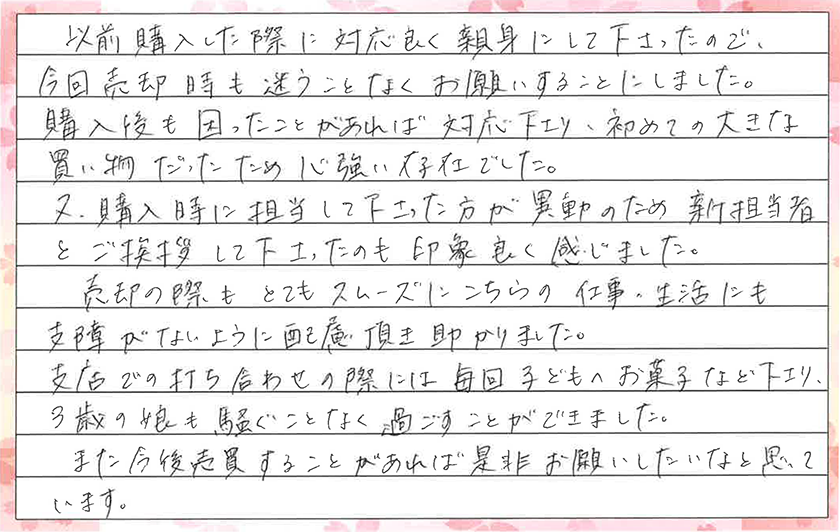 以前購入した際に対応良く親身にして下さったので、
今回売却時も迷うことなくお願いすることにしました。
購入後も困ったことがあれば対応下さり、初めての大きな
買い物だったため心強い存在でした。
又、購入時に担当して下さった方が異動のため新担当者
とご挨拶して下さったのも印象良く感じました。
売却の際もとてもスムーズにこちらの仕事・生活にも
支障がないように配慮頂き助かりました。
支店での打ち合わせの際には毎回子どもへお菓子など下さり、
3歳の娘も騒ぐことなく過ごすことができました。
また今後売買することがあれば是非お願いしたいなと思って
います。